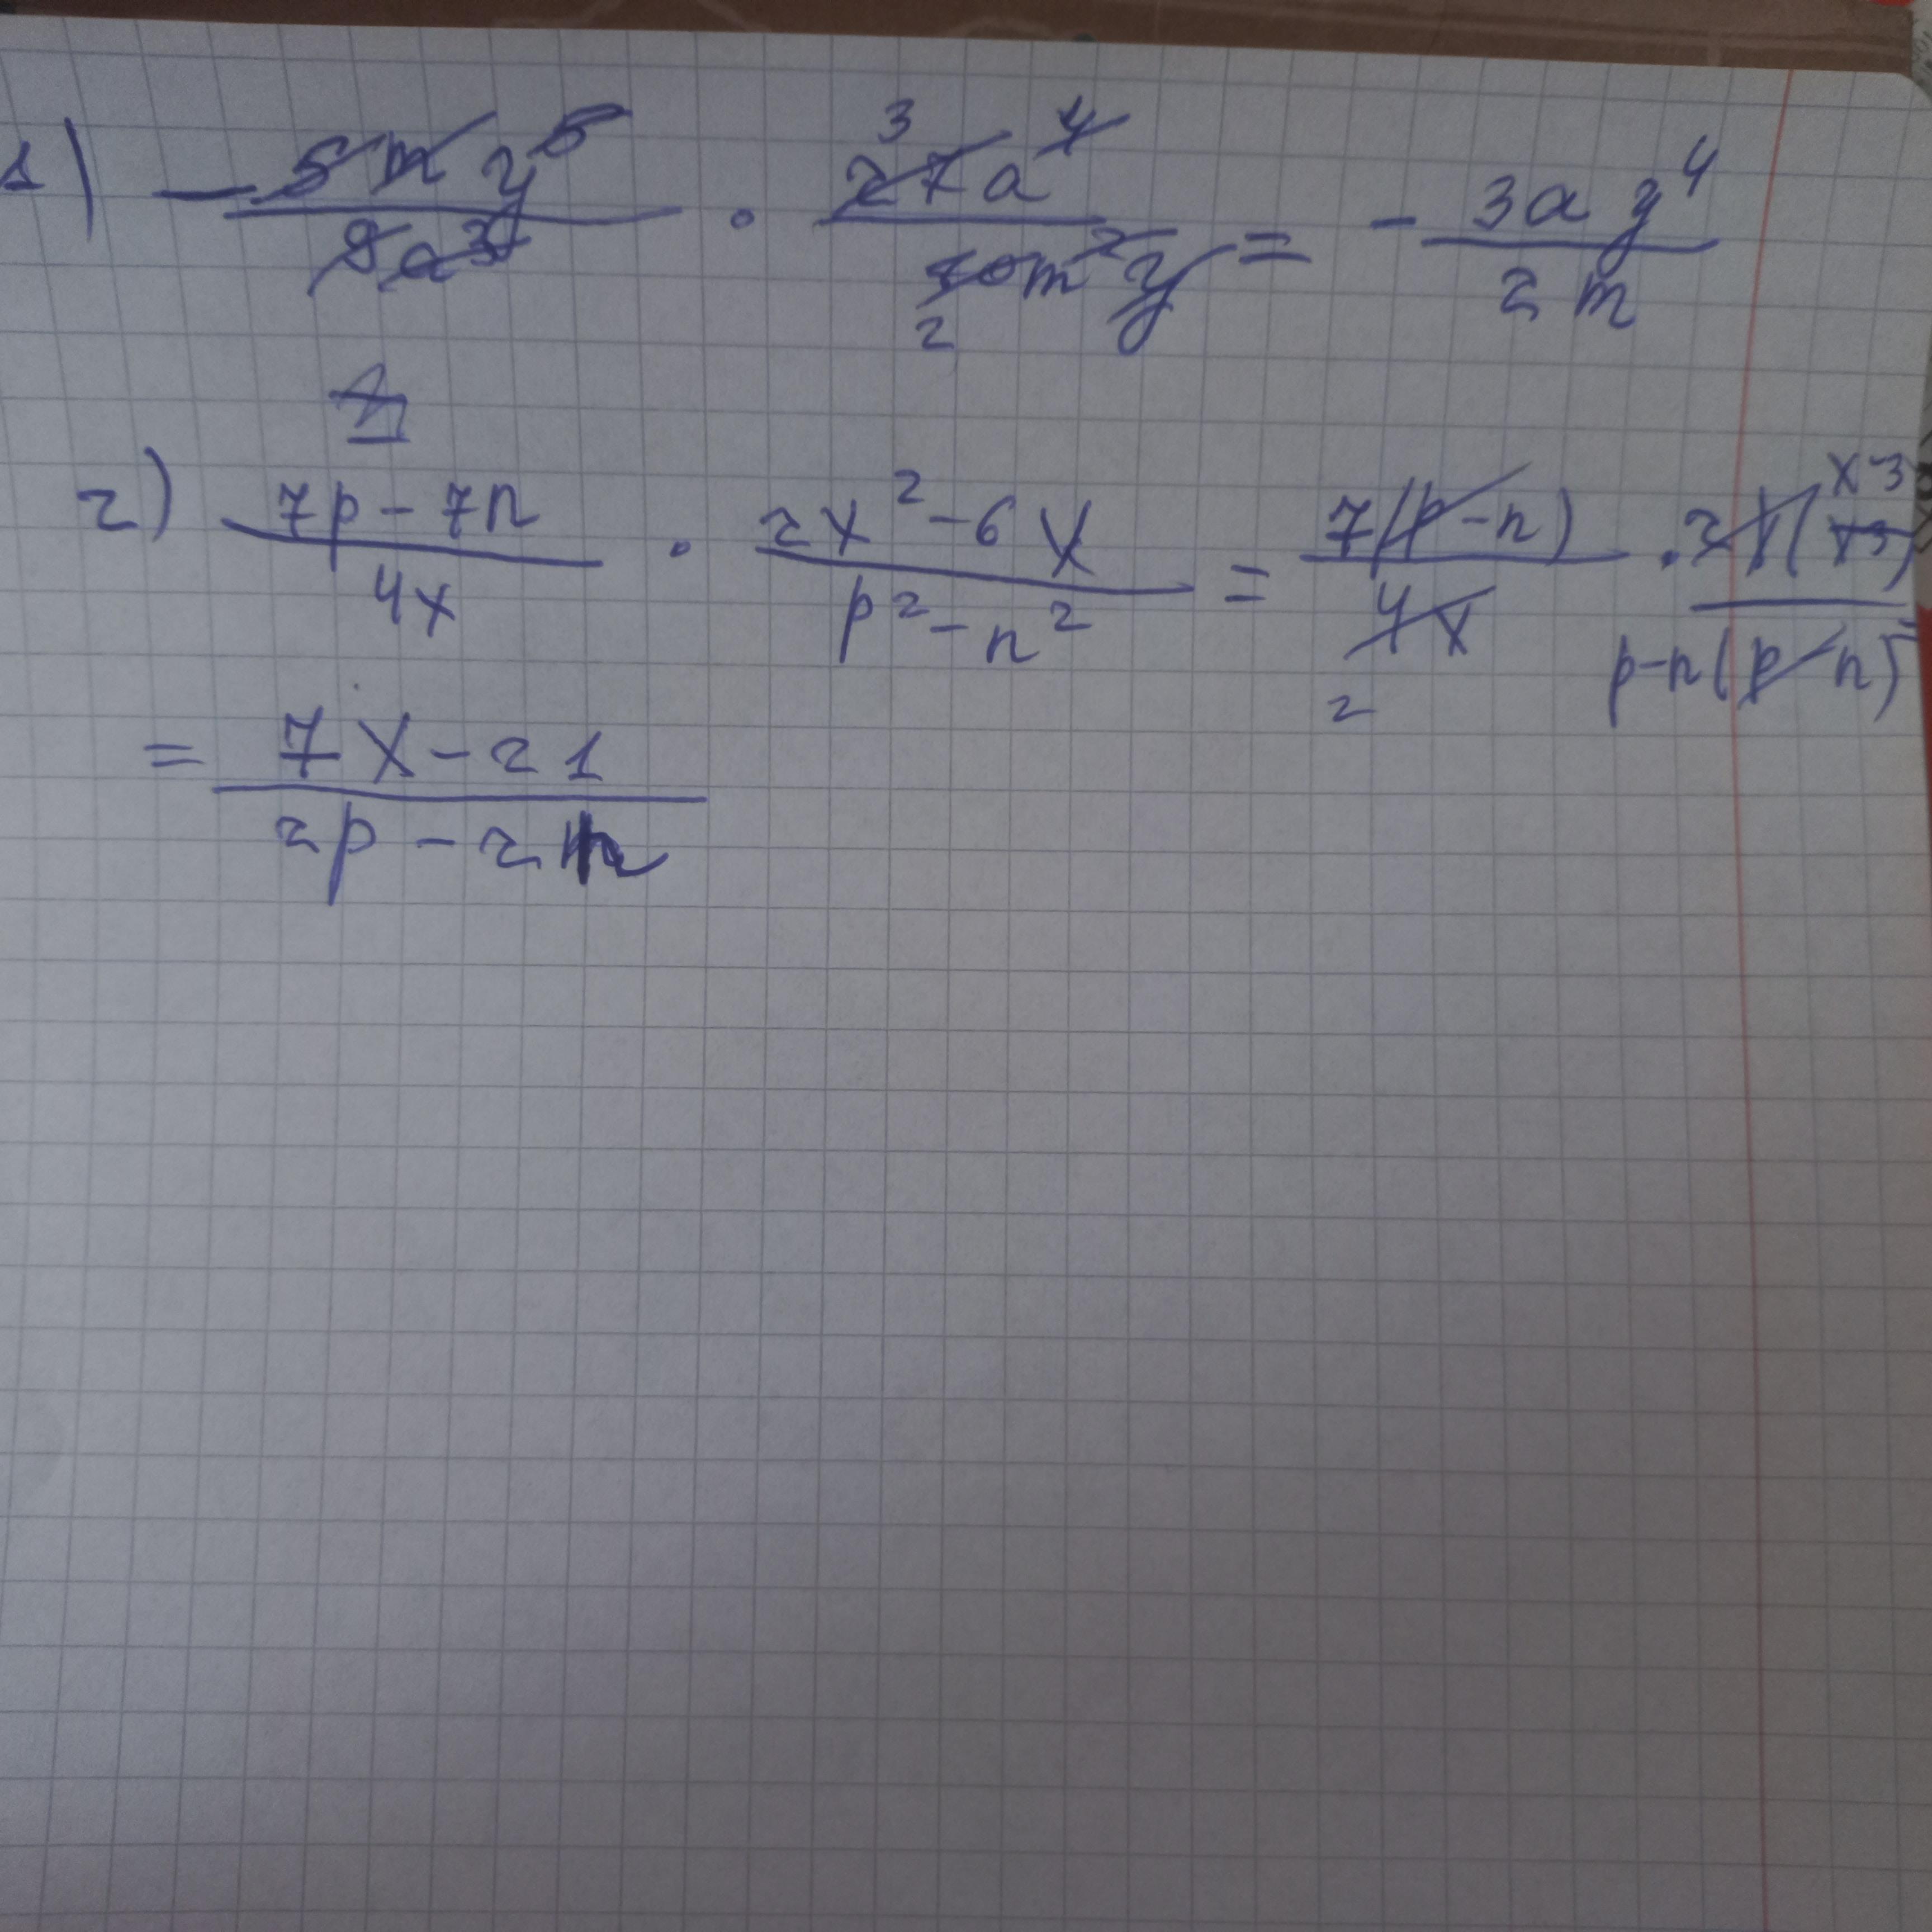 1) - 5my⁵/9a³ · 27a⁴/10m²y = - 3ay⁴/2m
3 2
2) 7p-7n/4x · 2x²-6x/p²-n² = 7(p-n)/4x · 2x(x3)/p-n(p-n)
2
= 7x-21/2p-2n